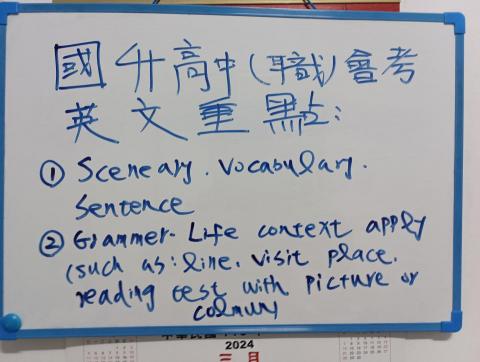 國升高中(職)會考
英文重點:
① Sceneary. Vocabulary.
Sentence
② Grammer. Life context apply
(such as: line. visit place.
reading test with picture or
2024
三月